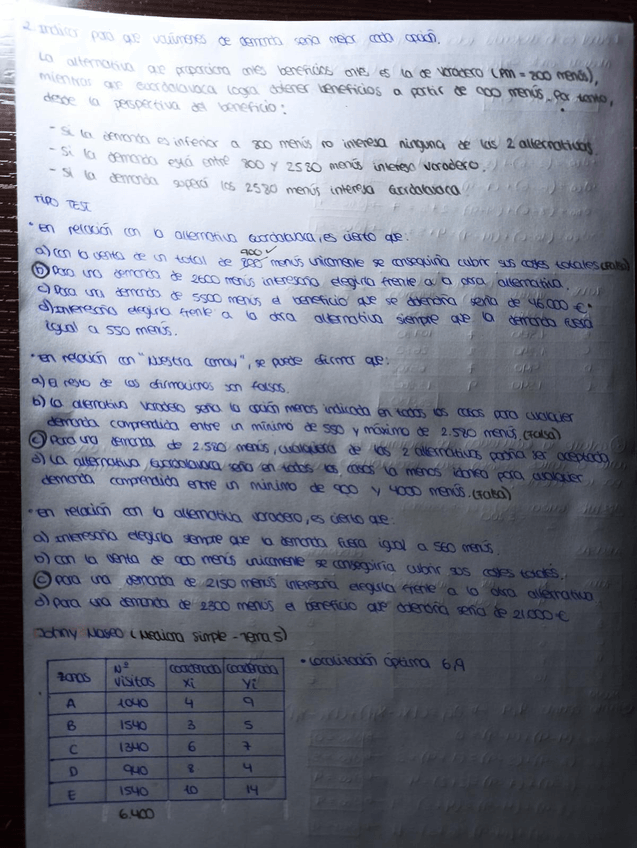 2. Indicar para que volúmenes de demanda sería mejor cada opción.
La alternativa que proporciona antes beneficios antes es la de Varadero (PM = 300 menús),
mientras que Guardalavaca logra obtener beneficios a partir de 900 menús. Por tanto,
desde la perspectiva del beneficio:
- Si la demanda es inferior a 300 menús no interesa ninguna de las 2 alternativas.
- Si la demanda está entre 300 y 2580 menús interesa Varadero.
- Si la demanda supera los 2580 menús interesa Guardalavaca.
TIPO TEST
• En relación con la alternativa Guardalavaca, es cierto que:
900 ✓
a) Con la venta de un total de menús unicamente se conseguiría cubrir sus costes totales (Falso)
b) Para una demanda de 2600 menús interesaría elegirla frente a la otra alternativa.
c) Para una demanda de 5500 menús el beneficio que se obtendría sería de 46.000 €.
d) Interesaría elegirla frente a la otra alternativa siempre que la demanda fuera
igual a 550 menús.
• En relación con "Nuestra", se puede afirmar que:
a) El resto de las afirmaciones son falsas.
b) La alternativa Varadero sería la opción menos indicada en todos los casos para cualquier
demanda comprendida entre un mínimo de 550 y máximo de 2.580 menús. (Falso)
c) Para una demanda de 2.580 menús, cualquiera de las 2 alternativas podría ser aceptada
d) La alternativa Guardalavaca sería en todos los casos la menos idónea para cualquier
demanda comprendida entre un mínimo de 900 y 4000 menús. (Falso)
• En relación con la alternativa Varadero, es cierto que:
a) Interesaría elegirla siempre que la demanda fuera igual a 560 menús.
b) Con la venta de 900 menús unicamente se conseguiría cubrir sus costes totales.
c) Para una demanda de 2150 menús interesaría elegirla frente a la otra alternativa
d) Para una demanda de 2800 menús el beneficio que obtendría sería de 21.000 €
Johny (Mediana simple - Tema 5)
Zonas Nº visitas Coordenada Xi Coordenada Yi
A 1040 4 9
B 1540 3 5
C 1340 6 7
D 940 8 4
E 1540 10 14
6.400
• Localización óptima 6,9